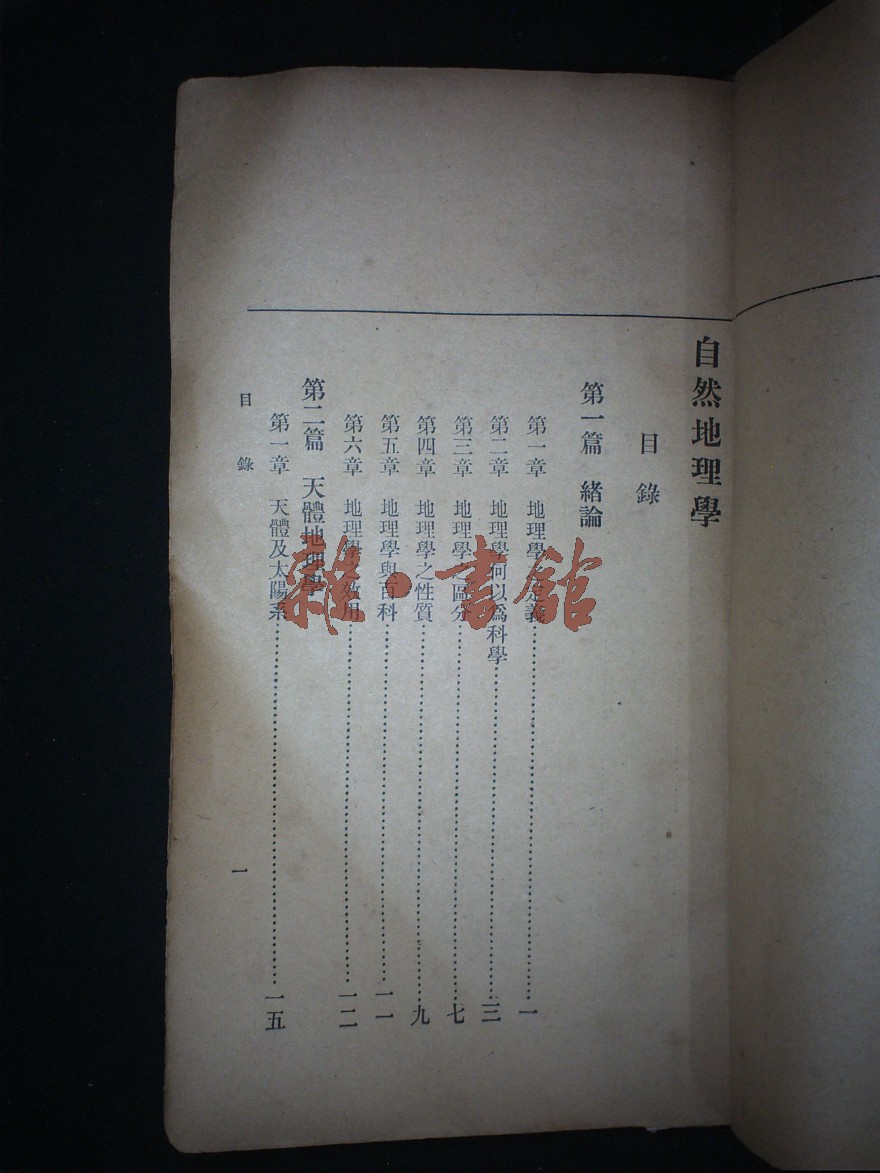 自然地理學
目錄
第一篇 緒論
第一章 地理學之定義……一
第二章 地理學何以爲科學……三
第三章 地理學之區分……七
第四章 地理學之性質……九
第五章 地理學與百科……一一
第六章 地理學之效用……一二
第二篇 天體地理學
第一章 天體及太陽系……一五
目錄
一
雜·書館